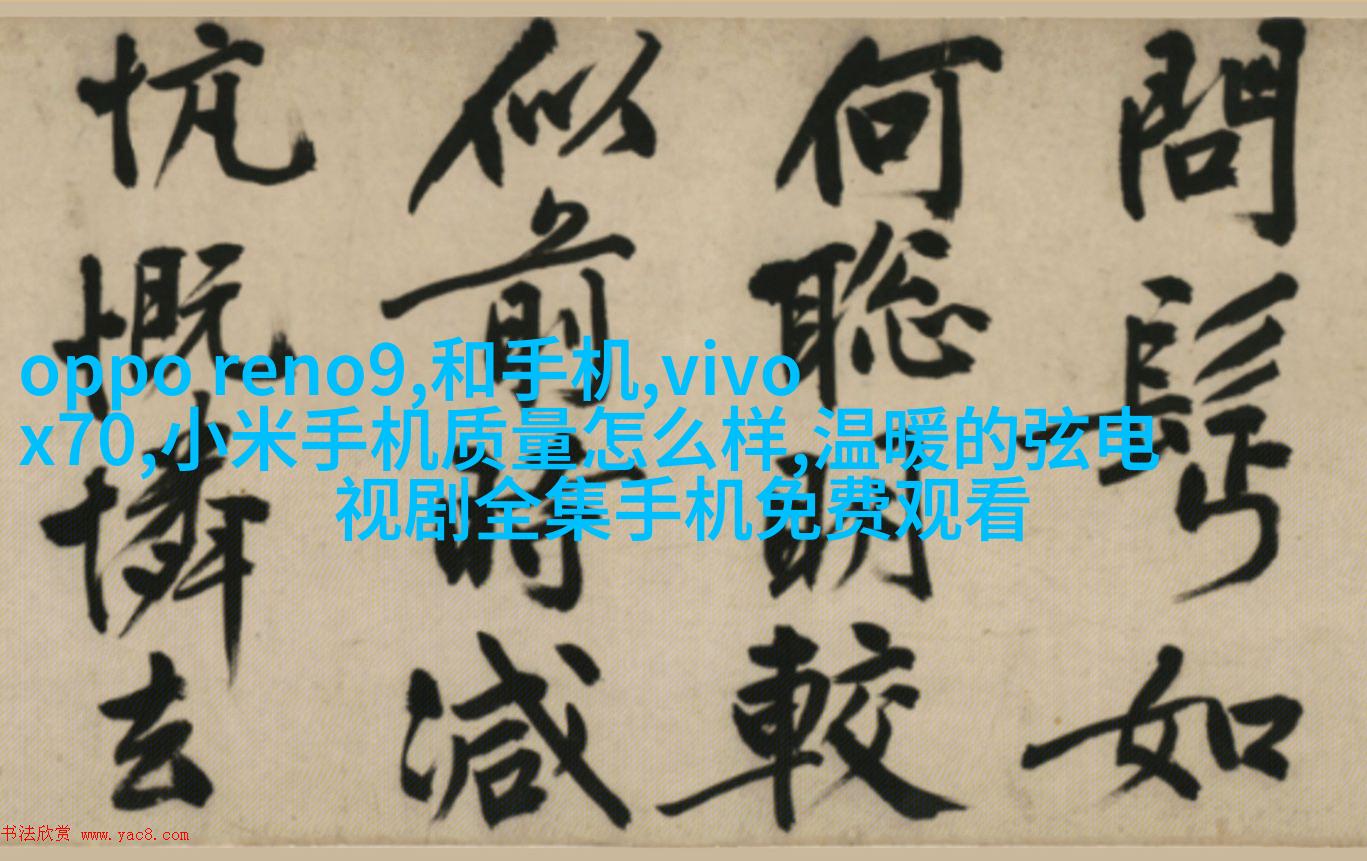 oppo reno9,和手机,vivo
x70,小米手机质量怎么样,温暖的弦电
视剧全集手机免费观看
問如
何聰明較
似前時減
忼慨憐去
书法欣赏 www.yac8.com